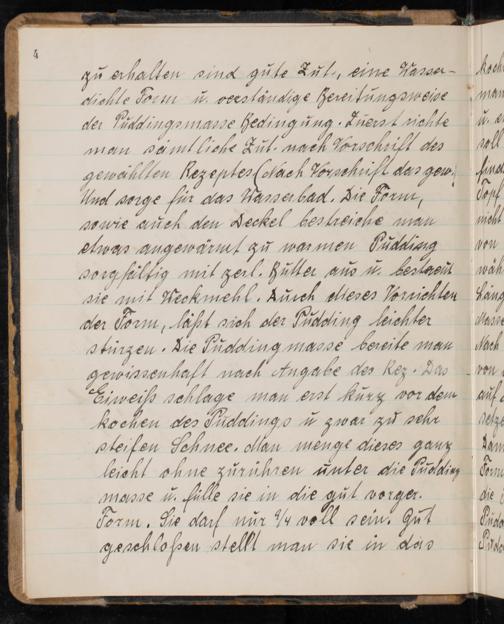 4
zu erhalten sind gute Zut., eine Wasser-
dichte Form u. verständige Bereitungsweise
der Puddingsmasse Bedingung. Zuerst richte
man sämtliche Zut. nach Vorschrift des
gewählten Rezeptes (Nach Vorschrift das gew.
Und sorge für das Wasserbad. Die Form,
sowie auch den Deckel bestreiche man
etwas angewärmt zu warmen Pudding
sorgfältig mit zerl. Butter aus u. bestreut
sie mit Weckmehl. Durch dieses Vorrichten
der Form, läßt sich der Pudding leichter
stürzen. Die Puddingmasse bereite man
gewissenhaft nach Angabe des Rez. Das
Eiweiß schlage man erst kurz vor dem
kochen des Puddings u zwar zu sehr
steifen Schnee. Man menge dieses ganz
leicht ohne zurühren unter die Pudding
masse u. fülle sie in die gut vorger.
Form. Sie darf nur 3/4 voll sein. Gut
geschloßen stellt man sie in das